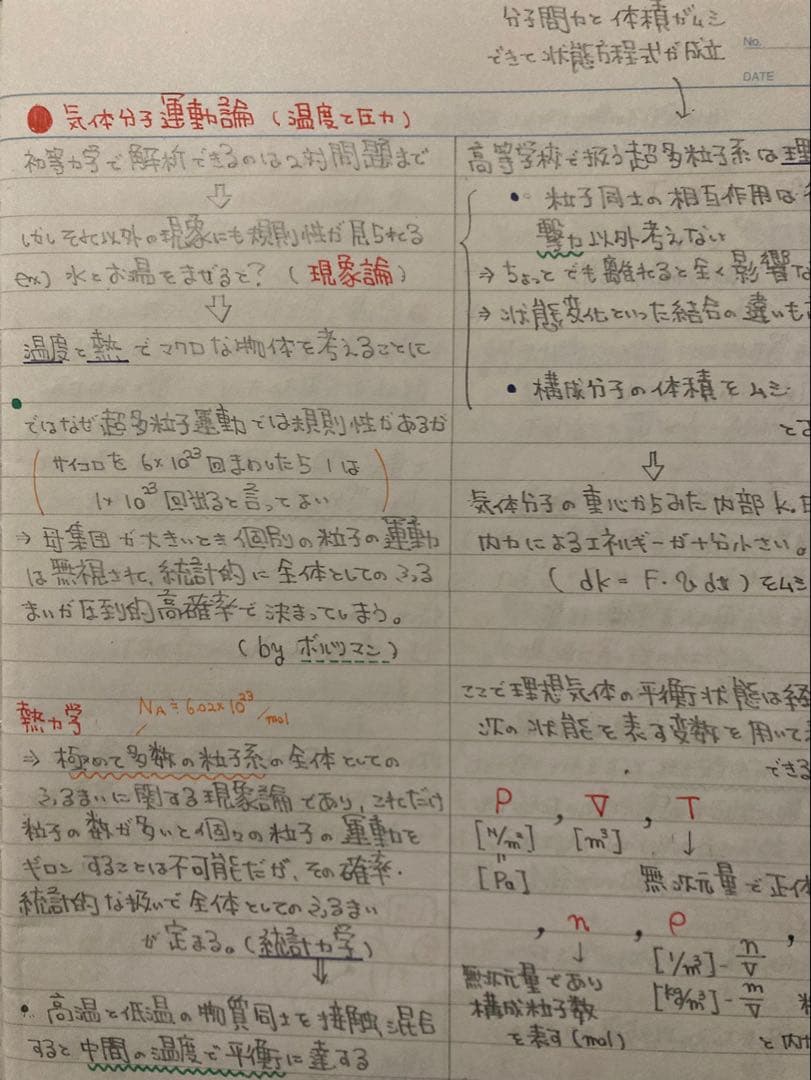 分子間力と体積がムシ
できて状態方程式が成立
No.
DATE
気体分子運動論(温度と圧力)
初等力学で解析できるのは2対問題まで
⇩
しかしそれ以外の現象にも規則性が見られる
ex) 水とお湯をまぜると?(現象論)
⇩
温度と熱でマクロな物体を考えることに
ではなぜ超多粒子運動では規則性があるか
(サイコロを 6×10²³回まわしたら 1は
1×10²³回出ると言ってよい)
⇒ 母集団が大きいとき個別の粒子の運動
は無視され、統計的に全体としてのふる
まいが圧倒的高確率で決まってしまう。
(by ボルツマン)
熱力学 NA≒6.02×10²³/mol
⇒ 極めて多数の粒子系の全体としての
ふるまいに関する現象論であり、これだけ
粒子の数が多いと個々の粒子の運動を
ギロンすることは不可能だが、その確率・
統計的な扱いで全体としてのふるまい
が定まる。(統計力学)
⇓
• 高温と低温の物質同士を接触、混合
すると中間の温度で平衡に達する
高等学校で扱う超多粒子系は理
• 粒子同士の相互作用は
撃力以外考えない
⇒ ちょっとでも離れると全く影響な
⇒ 状態変化といった結合の違いも
• 構成分子の体積をムシ
と
⇩
気体分子の重心からみた内部k.
内力によるエネルギーが十分小さい。
(dk = F・v dt)をムシ
ここで理想気体の平衡状態は経
次の状態を表す変数を用いて
できる
P , V , T
[N/m²] [m³] ↓
[Pa] 無次元量で正体
, n , ρ ,
↓ [1/m³]-n/V
無次元量であり [kg/m³]-m/V
構成粒子数
を表す(mol) と内